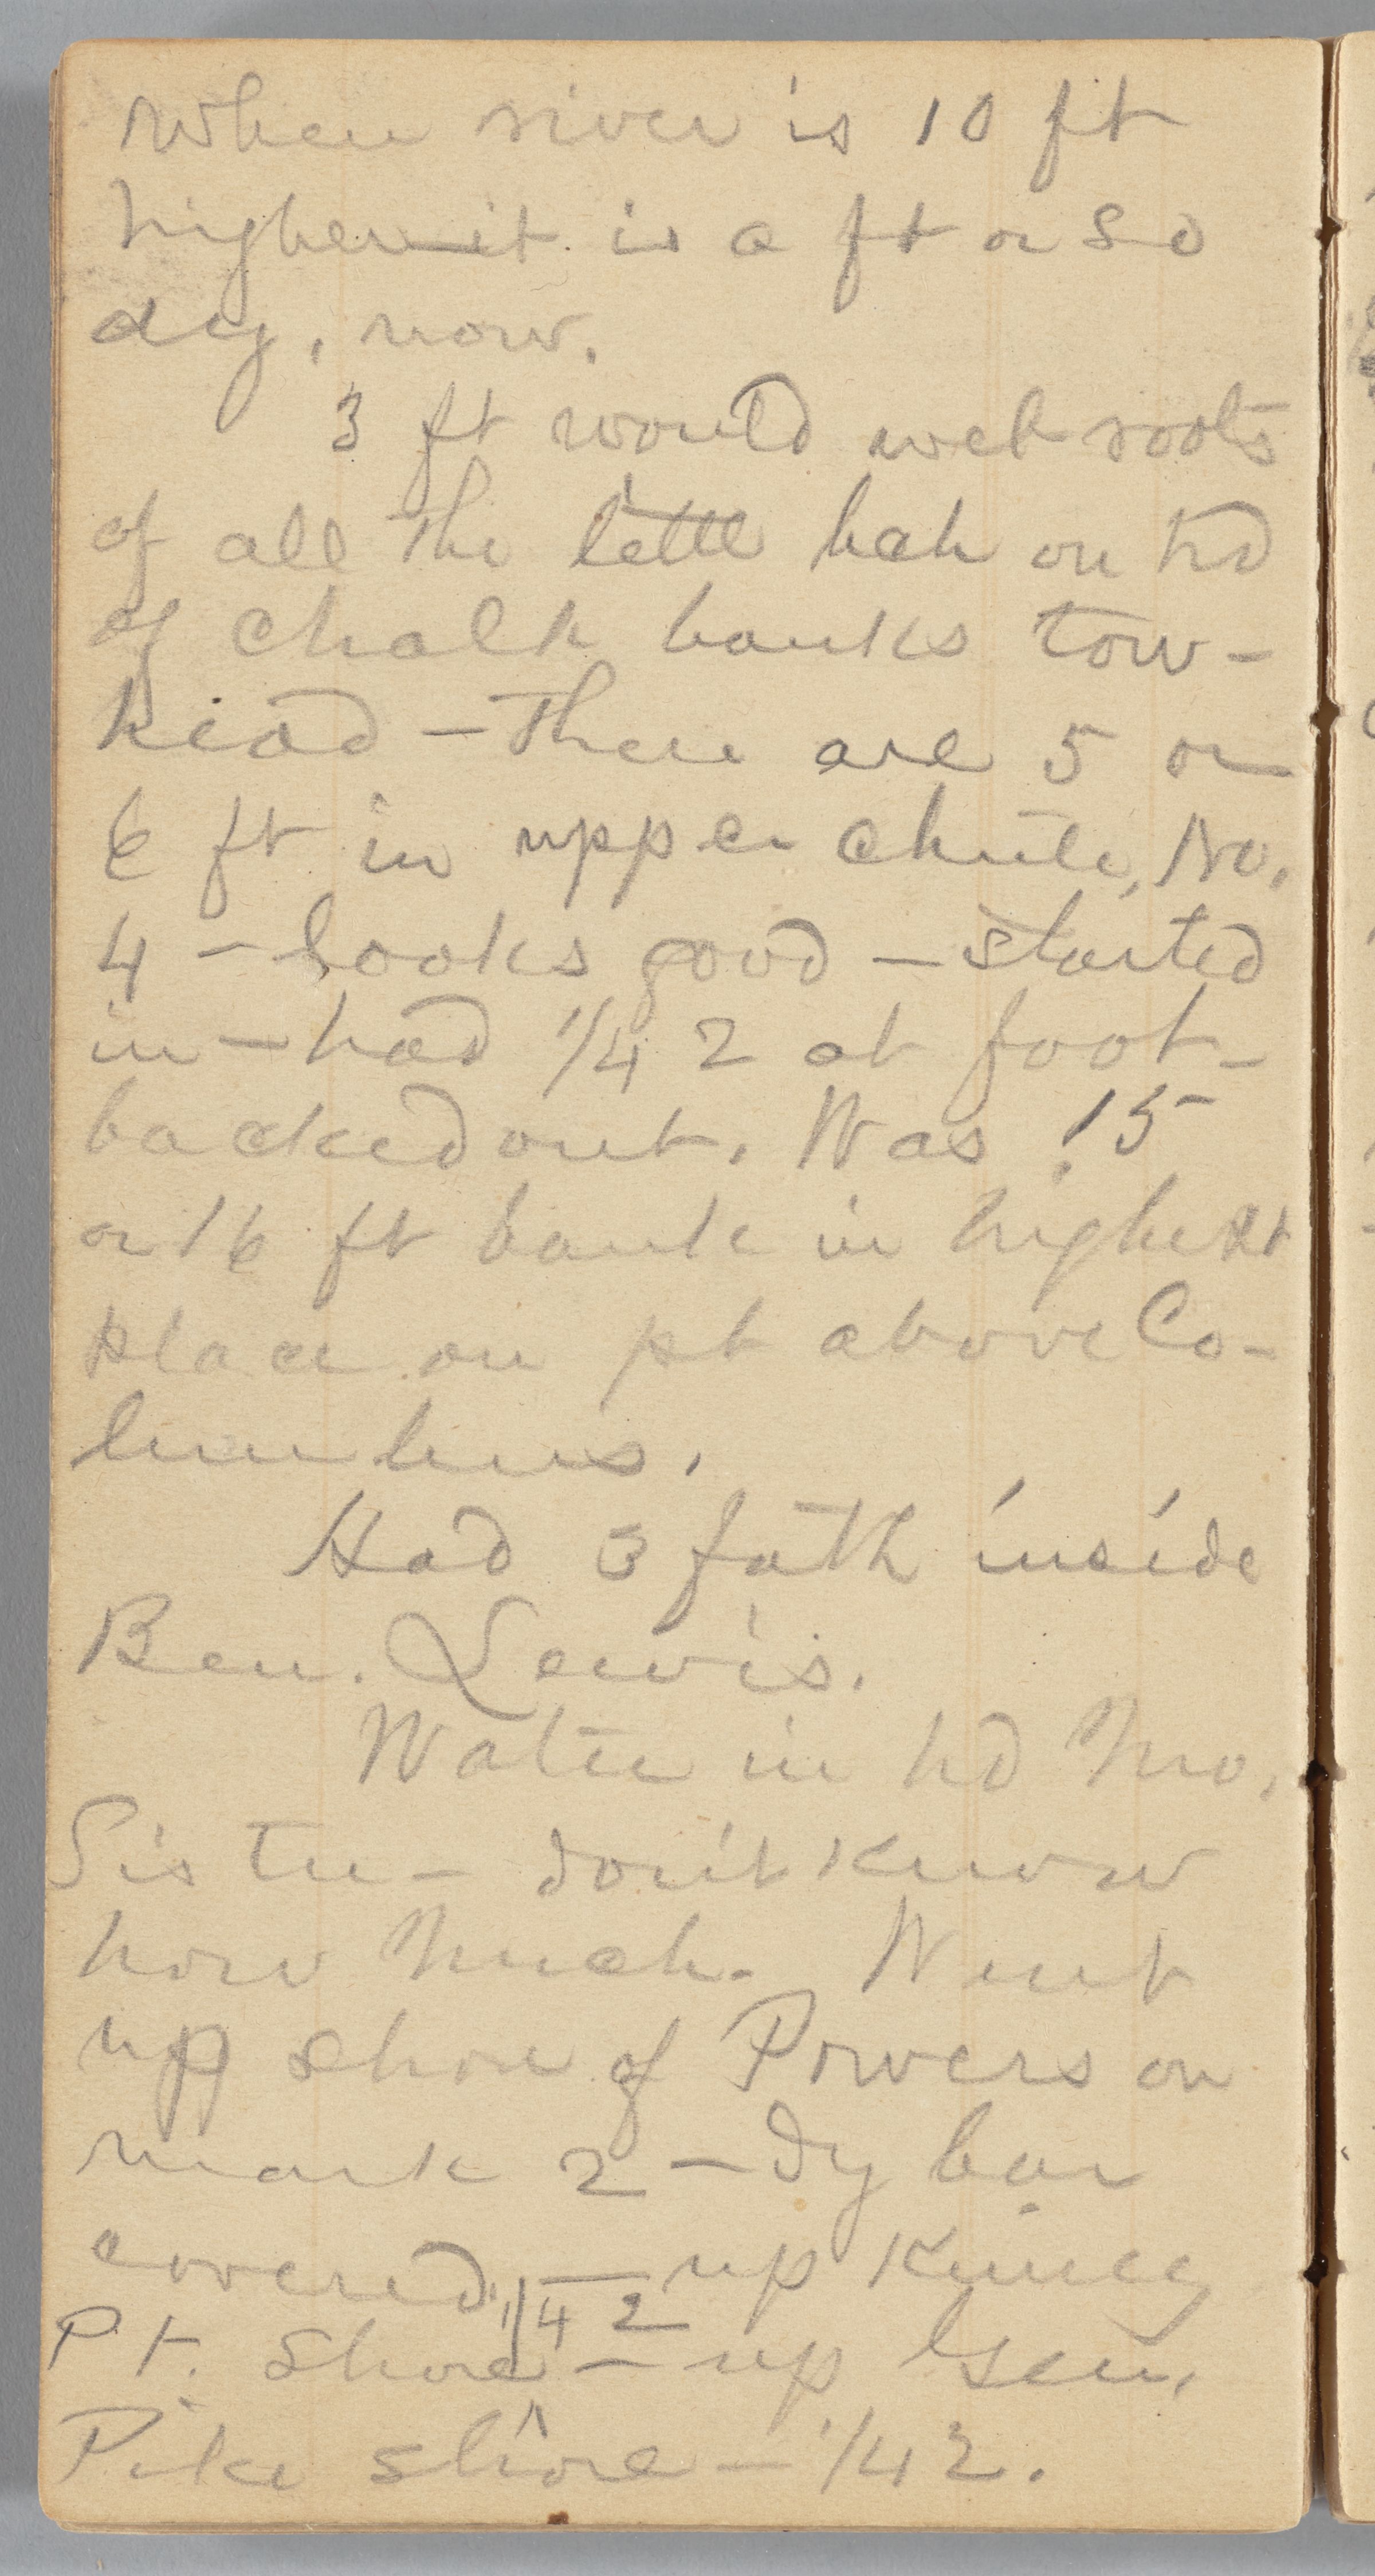 When river is 10 ft
higher—it is a ft or so
dry, now.
3 ft would wet roots
of all the little bch on hd
of chalk banks tow-
head — There are 5 or
6 ft in upper chute, No.
4 — looks good — started
in — had 1/4 2 at foot —
backed out. Was 15
or 16 ft bank in highest
place on pt above Co-
lumbus.
Had 3 fath inside
Ben. Lewis.
Water in hd No.
Sister — don't know
how much. Went
up shore of Powers on
mark 2 — dry bar
covered, — up Kinney
1/4 2
Pt. Shore — up Gen.
Pike shore — 1/4 2.